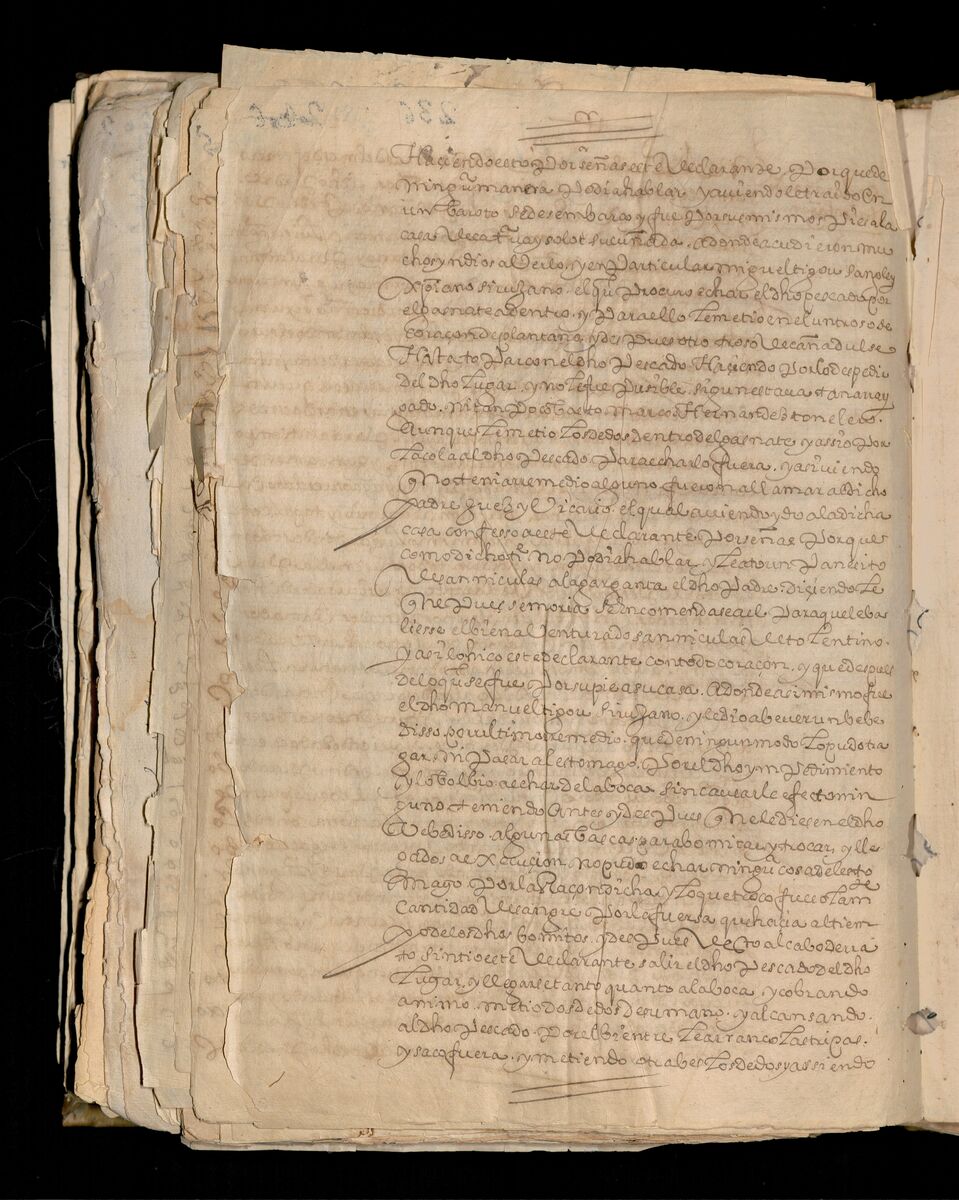 Haçiendo esto Por señas este declarante, Porque de
ningũ manera Podia hablar y aviendole traido En
un baroto se desembarco y fue Por sus mismos Pies a la
casa de catna ysolot su cuñada. adonde acudieron mu
chos yndios a Verlo, y en Particular miguel tigou sangley
xpiano sirujano. el ql Procuro echar el dho pescado por
el gasnate adentro, y Para ello le metio en el un troso de
coraçon de plantano, y des Pues otro troso de caña dulse
Hasta to Par con el dho Pescado Haçiendo Por lo despedir
del dho lugar, y no le fue Pusible, sigun estava atanaray
gado. ni tan Poco basto marcos Hernandes tonelero.
Aunque le metio los dedos dentro del gasnate y assio Por
la cola al dho Pescado Para echarlo fuera, y assi viendo
q No tenia remedio alguno, fueron a llamar al dicho
Padre Juez y Vicario. el qual aviendo ydo a la dicha
casa confesso a este declarante Por señas Porque
como dicho tiẽ. no Podia hablar y le ato un Panecito
de san niculas a la garganta el dho Padre: Diçiendole
q ne Pues semoria se encomendase a el Para que le ba
liesse el bien a Venturado san niculas de tolentino.
y assi lo hiço este declarante con todo coraçon, y que despues
de lo ql se fue Por su pie a su casa. Adonde asimismo fue
el dho manuel tigou sirujano. y le dio a bever un bebe
disso, Por ultimo remedio. que de ningun modo lo pudo tra
gar, ni Pasar al estomago, Por el dho ym Pedimiento
y lo bolbio a echar de la boca sin causarle efecto nin
guno teniendo Antes y des Pues q ne le diesen el dho
bebedisso. algunas bascas para bomitar, y trocar, y lle
gados a execuçion. no pudo echar ningũ cosa del esto
mago Por la Raçon dicha, y lo que troco fue solam te
cantidad de sangre Por la fuersa que hacia al tiem
po de los dhos bomitos. y des Pues desto al cabo de rra
to sintio este declarante salir el dho Pescado del dho
lugar, y llegarse tanto quanto a la boca, y cobrando
animo. metio dos dedos de su mano. y alcansando.
al dho Pescado. Por el bientre le arranco las tripas.
y saco fuera. y metiendo otra bes los dedos y assiendo